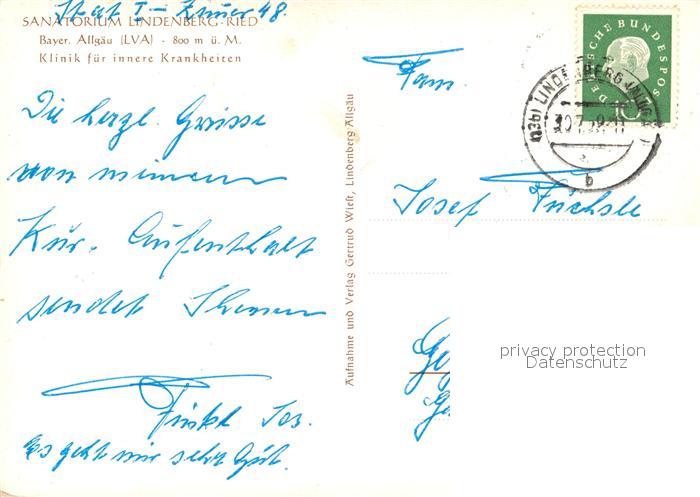 Stat I - Zimmer 48.
SANATORIUM LINDENBERG-RIED
Bayer. Allgäu (LVA) - 800 m ü. M.
Klinik für innere Krankheiten
Die herzl. Grüsse
von meinem
Kur. Aufenthalt
sendet Ihnen
Finkl Jos.
Es geht mir sehr Gut.
Aufnahme und Verlag Gertrud Wiest, Lindenberg-Allgäu
DEUTSCHE BUNDESPOST
10
(13b) LINDENBERG (ALLGÄU)
b
Fam.
Josef Füchsle
privacy protection
Datenschutz